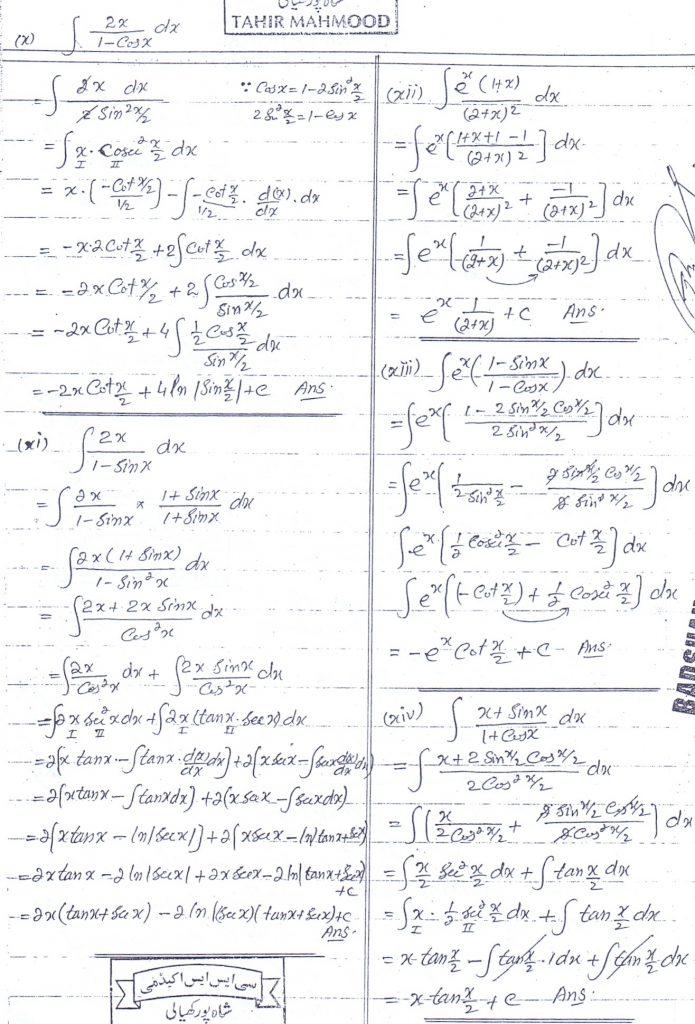 شاہ پور کھیالی
TAHIR MAHMOOD
(x) ∫ 2x/(1-Cosx) dx
= ∫ 2x dx / 2 Sin²x/2 ∵ Cosx = 1-2Sin²x/2
2Sin²x/2 = 1-Cosx
= ∫ x · Cosec² x/2 dx
I II
= x·(-Cot x/2 / 1/2) - ∫ -Cot x/2 / 1/2 · d(x)/dx · dx
= -x·2Cot x/2 + 2∫Cot x/2 dx
= -2x Cot x/2 + 2∫ Cos x/2 / Sin x/2 dx
= -2x Cot x/2 + 4∫ 1/2 Cos x/2 / Sin x/2 dx
= -2x Cot x/2 + 4 ln |Sin x/2| + c Ans.
(xi) ∫ 2x/(1-Sinx) dx
= ∫ 2x/(1-Sinx) × (1+Sinx)/(1+Sinx) dx
= ∫ 2x(1+Sinx)/(1-Sin²x) dx
= ∫ (2x+2x Sinx)/Cos²x dx
= ∫ 2x/Cos²x dx + ∫ 2x Sinx/Cos²x dx
= ∫2x Sec²x dx + ∫2x(tanx·Secx) dx
I II I II
= 2[x tanx - ∫tanx · d(x)/dx dx] + 2[x Secx - ∫Secx d(x)/dx dx]
= 2[x tanx - ∫tanx dx] + 2(x Secx - ∫Secx dx)
= 2[x tanx - ln|Secx|] + 2[x Secx - ln|tanx+Secx|]
= 2x tanx - 2 ln|Secx| + 2x Secx - 2 ln|tanx+Secx|
+c
= 2x(tanx+Secx) - 2 ln |(Secx)(tanx+Secx)|+c
Ans.
سی ایس ایس اکیڈمی
شاہ پور کھیالی
(xii) ∫ eˣ(1+x)/(2+x)² dx
= ∫ eˣ[(1+x+1-1)/(2+x)²] dx
= ∫ eˣ[(2+x)/(2+x)² + -1/(2+x)²] dx
= ∫ eˣ[1/(2+x) + -1/(2+x)²] dx
= eˣ 1/(2+x) + c Ans.
(xiii) ∫ eˣ((1-Sinx)/(1-Cosx)) dx
= ∫ eˣ[(1-2 Sin x/2 Cos x/2)/(2 Sin² x/2)] dx
= ∫ eˣ[1/(2 Sin² x/2) - (2 Sin x/2 Cos x/2)/(2 Sin² x/2)] dx
∫ eˣ[1/2 Cosec² x/2 - Cot x/2] dx
∫ eˣ[(-Cot x/2) + 1/2 Cosec² x/2] dx
= -eˣ Cot x/2 + c Ans.
(xiv) ∫ (x+Sinx)/(1+Cosx) dx
= ∫ (x+2 Sin x/2 Cos x/2)/(2 Cos² x/2) dx
= ∫ [x/(2 Cos² x/2) + (2 Sin x/2 Cos x/2)/(2 Cos² x/2)] dx
= ∫ x/2 Sec² x/2 dx + ∫ tan x/2 dx
= ∫ x · 1/2 Sec² x/2 dx + ∫ tan x/2 dx
I II
= x tan x/2 - ∫ tan x/2 · 1dx + ∫ tan x/2 dx
= x tan x/2 + c Ans.